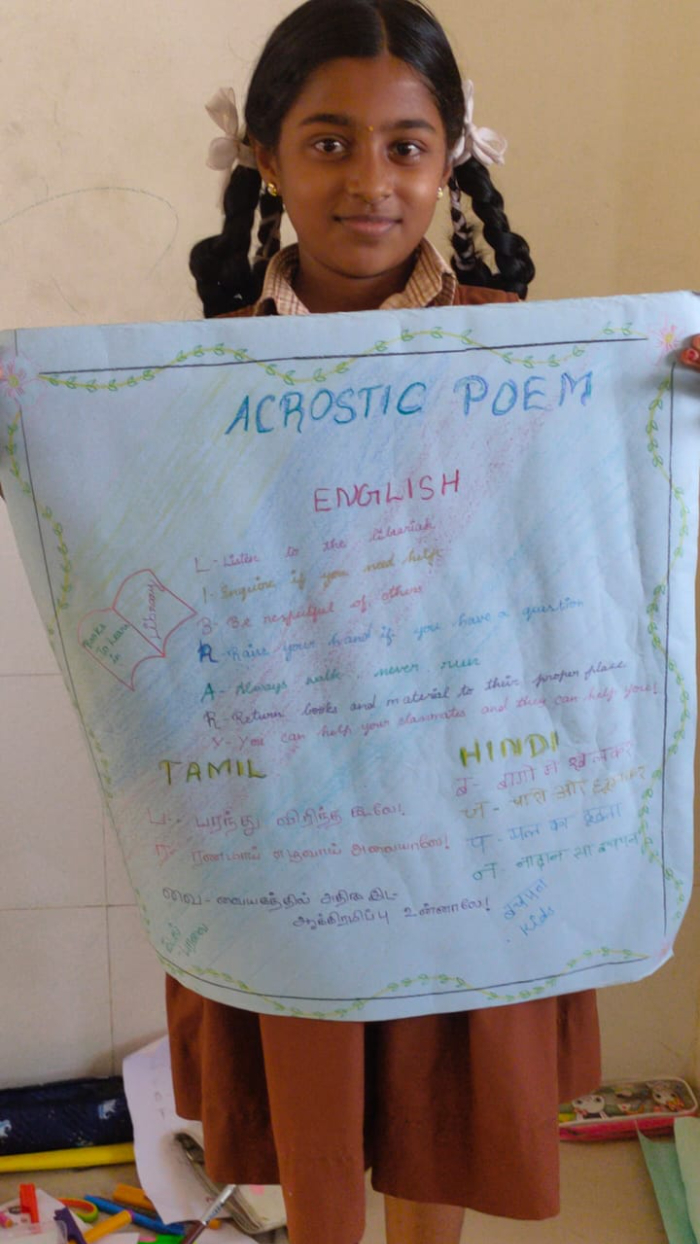 ACROSTIC POEM
ENGLISH
L - Listen to the librarian
I - Enquire if you need help
B - Be respectful of others
R - Raise your hand if you have a question
A - Always walk never run
R - Return books and material to their proper place
Y - You can help your classmates and they can help you!
Books
To Learn
in
Library
TAMIL
ப - பரந்து விரிந்த இலே!
வை - வையகத்தில் அதிக இட
ஆக்கிரமிப்பு உன்னாலே!
HINDI
ब - बागो में खेलकर
ज - चारो ओर
प - का
न - नादान सा बचपन
बचपन
Kids